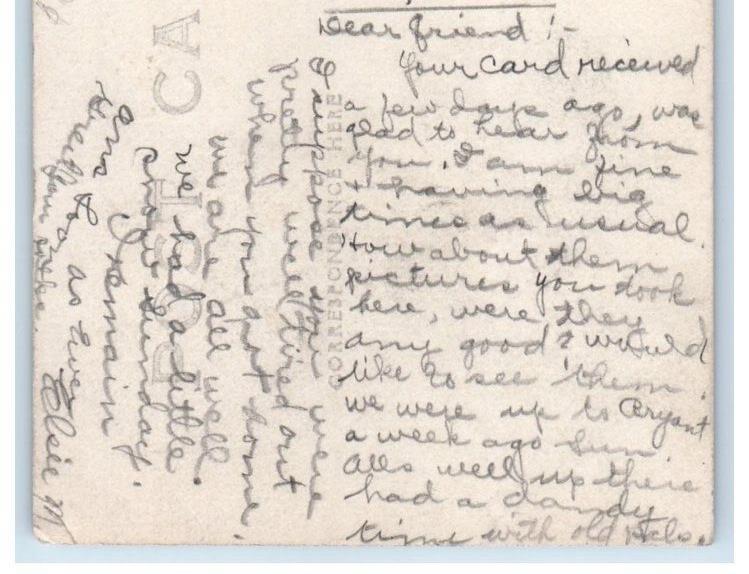 Dear friend :-
Your card received
a few days ago, was
glad to hear from
you. I am fine
+ having big
times as usual.
How about them
pictures you took
here, were they
any good? would
like to see them.
we were up to Bryant
a week ago Sun
Alls well up there
had a dandy
time with old pals.
I suppose you were
pretty well tired out
when you got home.
we are all well.
we had a little
snow Sunday.
I remain
as ever
Elsie M
Ans
POST CA
CORRESPONDENCE HERE